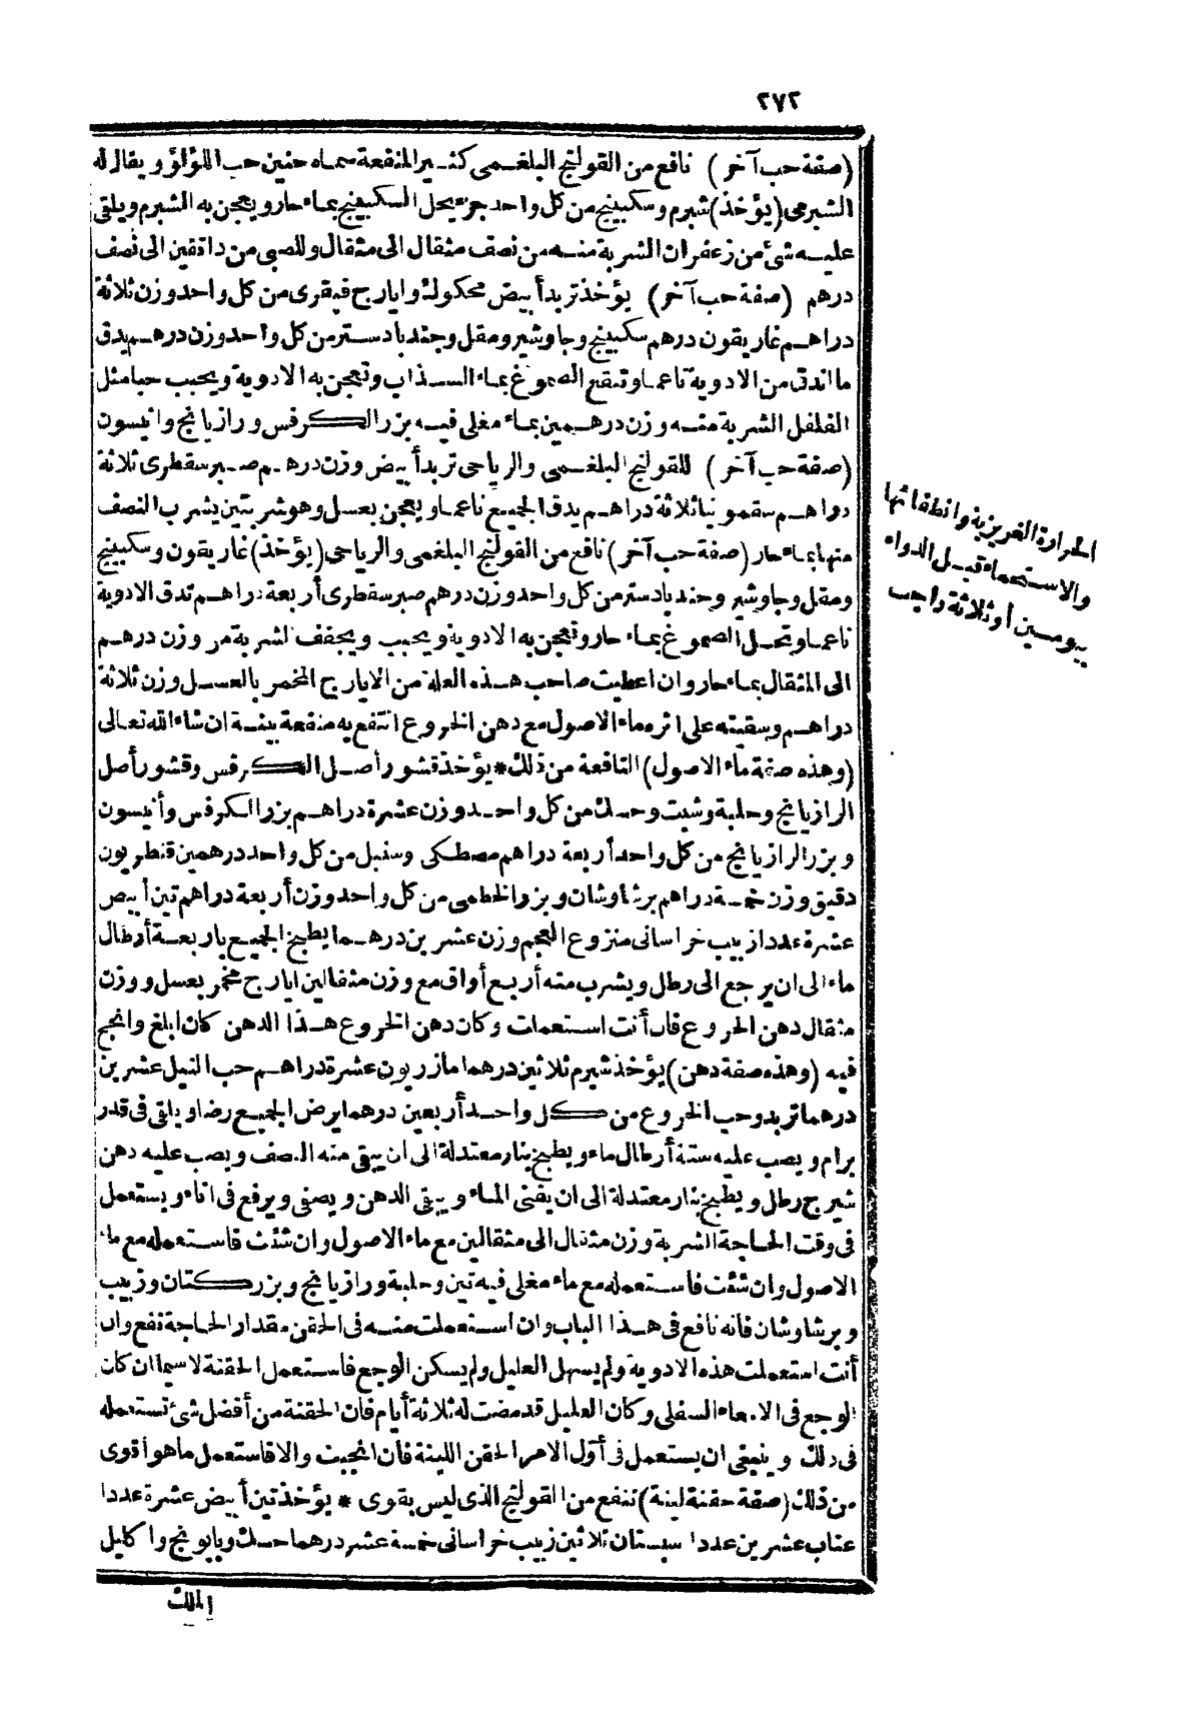 ٢٧٢
(صفة حب آخر) نافع من القولنج البلغمى كثير المنفعة سماه حنين حب اللؤلؤ ويقال له
الشبرمى (يؤخذ) شبرم وسكبينج من كل واحد جزء يحل السكبينج بماء حار ويعجن به الشبرم ويلقى
عليه شئ من زعفران الشربة منه من نصف مثقال الى مثقال وللصبى من دانقين الى نصف
درهم (صفة حب آخر) يؤخذ تربد أبيض محكوك وايارج فيقرى من كل واحد وزن ثلاثة
دراهم غاريقون درهم سكبينج وجاوشير ومقل وجندبادستر من كل واحد وزن درهم يدق
ما اندق من الادوية ناعما وتنقع الصموغ بماء السذاب وتعجن به الادوية ويحبب حبا مثل
الفلفل الشربة منه وزن درهمين بماء مغلى فيه بزر الكرفس ورازيانج وانيسون
(صفة حب آخر) للقولنج البلغمى والرياحى تربد أبيض وزن درهم صبر سقطرى ثلاثة
دراهم سقمونيا ثلاثة دراهم يدق الجميع ناعما ويعجن بعسل وهو شربتين يشرب النصف
منها بماء حار (صفة حب آخر) نافع من القولنج البلغمى والرياحى (يؤخذ) غاريقون وسكبينج
ومقل وجاوشير وجندبادستر من كل واحد وزن درهم صبر سقطرى أربعة دراهم تدق الادوية
ناعما وتحل الصموغ بماء حار وتعجن به الادوية ويحبب ويجفف الشربة من وزن درهم
الى المثقال بماء حار وان اعطيت صاحب هذه العلة من الايارج المخمر بالعسل وزن ثلاثة
دراهم وسقيته على اثره ماء الاصول مع دهن الخروع انتفع به منفعة بينة ان شاء الله تعالى
(وهذه صفة ماء الاصول) النافعة من ذلك * يؤخذ قشور أصل الكرفس وقشور أصل
الرازيانج وحلبة وشبت وحسك من كل واحد وزن عشرة دراهم بزر الكرفس وأنيسون
وبزر الرازيانج من كل واحد أربعة دراهم مصطكى وسنبل من كل واحد درهمين قنطريون
دقيق وزن خمسة دراهم برشاوشان وبزر الخطمى من كل واحد وزن أربعة دراهم تين أبيض
عشرة عددا زبيب خراسانى منزوع العجم وزن عشرين درهما يطبخ الجميع باربعة أرطال
ماء الى ان يرجع الى رطل ويشرب منه أربع أواق مع وزن مثقالين ايارج مخمر بعسل ووزن
مثقال دهن الخروع فان أنت استعملت وكان دهن الخروع هذا الدهن كان ابلغ وانجح
فيه (وهذه صفة دهن) يؤخذ شبرم ثلاثين درهما مازريون عشرة دراهم حب النيل عشرين
درهما تربد وحب الخروع من كل واحد أربعين درهما يرض الجميع رضا ويلقى فى قدر
برام ويصب عليه ستة أرطال ماء ويطبخ بنار معتدلة الى ان يبقى منه النصف ويصب عليه دهن
شيرج رطل ويطبخ بنار معتدلة الى ان يفنى الماء ويبقى الدهن ويصفى ويرفع فى اناء ويستعمل
فى وقت الحاجة الشربة وزن مثقال الى مثقالين مع ماء الاصول وان شئت فاستعمله مع ماء
الاصول وان شئت فاستعمله مع ماء مغلى فيه تين وحلبة ورازيانج وبزر كتان وزبيب
وبرشاوشان فانه نافع فى هذا الباب وان استعملت منه فى الحقن مقدار الحاجة نفع وان
أنت استعملت هذه الادوية ولم يسهل العليل ولم يسكن الوجع فاستعمل الحقنة لاسيما ان كان
الوجع فى الامعاء السفلى وكان العليل قد مضت له ثلاثة أيام فان الحقنة من أفضل شئ تستعمله
فى ذلك وينبغى ان يستعمل فى أول الامر الحقن اللينة فان انجبت والا فاستعمل ما هو أقوى
من ذلك (صفة حقنة لينة) تنفع من القولنج الذى ليس بقوى * يؤخذ تين أبيض عشرة عددا
عناب عشرين عددا سبستان ثلاثين زبيب خراسانى خمسة عشر درهما حسك وبابونج واكليل
الملك
الحرارة الغريزية وانطفائها
والاستحمام قبل الدواء
بيومين أو ثلاثة واجب